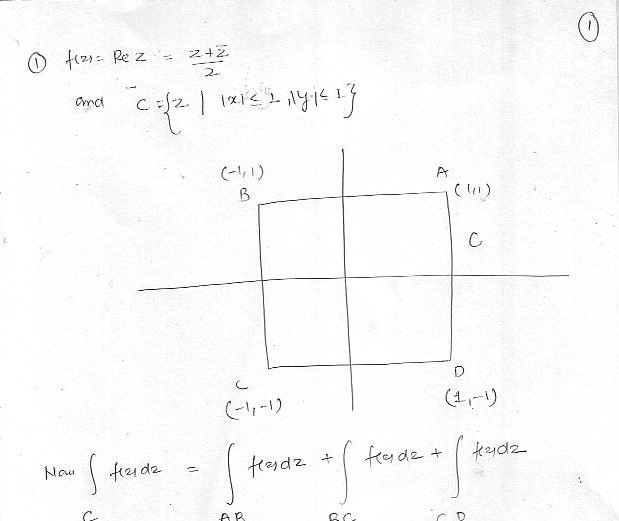 ①
① f(z) = Re z = z+z̄/2
and C = {z | |x| ≤ 1, |y| ≤ 1}
(-1,1) A
B (1,1)
C
C D
(-1,-1) (1,-1)
Now ∫_C f(z)dz = ∫_AB f(z)dz + ∫_BC f(z)dz + ∫_CD f(z)dz